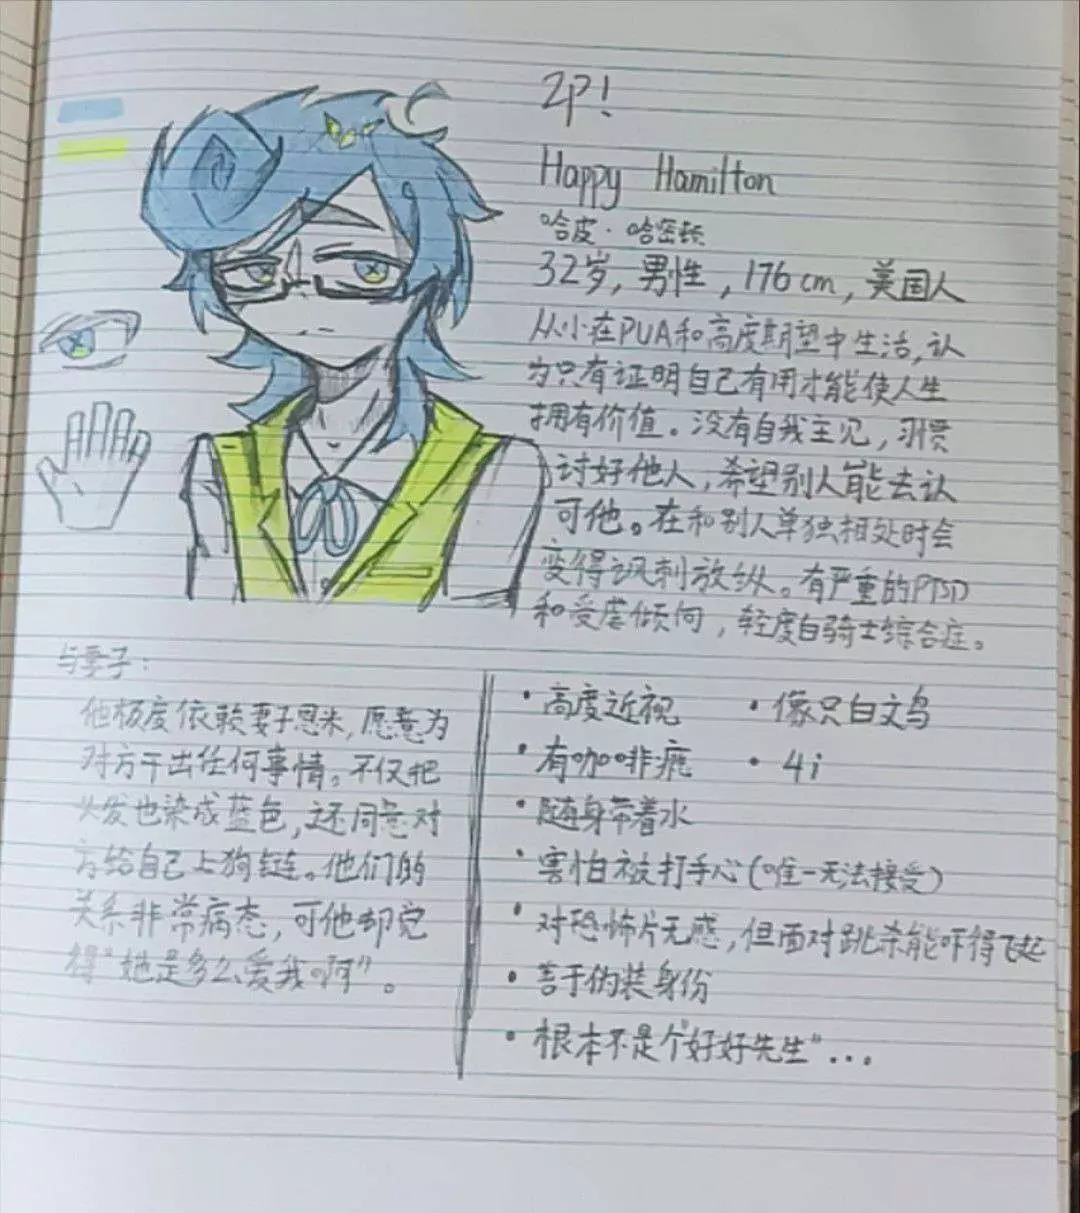 2P!
Happy Hamilton
哈皮·哈密顿
32岁，男性，176cm，美国人
从小在PUA和高度期望中生活，认
为只有证明自己有用才能使人生
拥有价值。没有自我主见，习惯
讨好他人，希望别人能去认
可他。在和别人单独相处时会
变得讽刺放纵。有严重的PTSD
和受虐倾向，轻度白骑士综合症。
与妻子：
他极度依赖妻子恩米，愿意为
对方干出任何事情。不仅把
头发也染成蓝色，还同意对
方给自己上狗链。他们的
关系非常病态，可他却觉
得“她是多么爱我啊”。
·高度近视
·有咖啡瘾
·随身带着水
·害怕被打手心(唯一无法接受)
·对恐怖片无感，但面对跳杀能吓得飞起
·善于伪装身份
·根本不是个“好好先生”...
·像只白文鸟
·4i